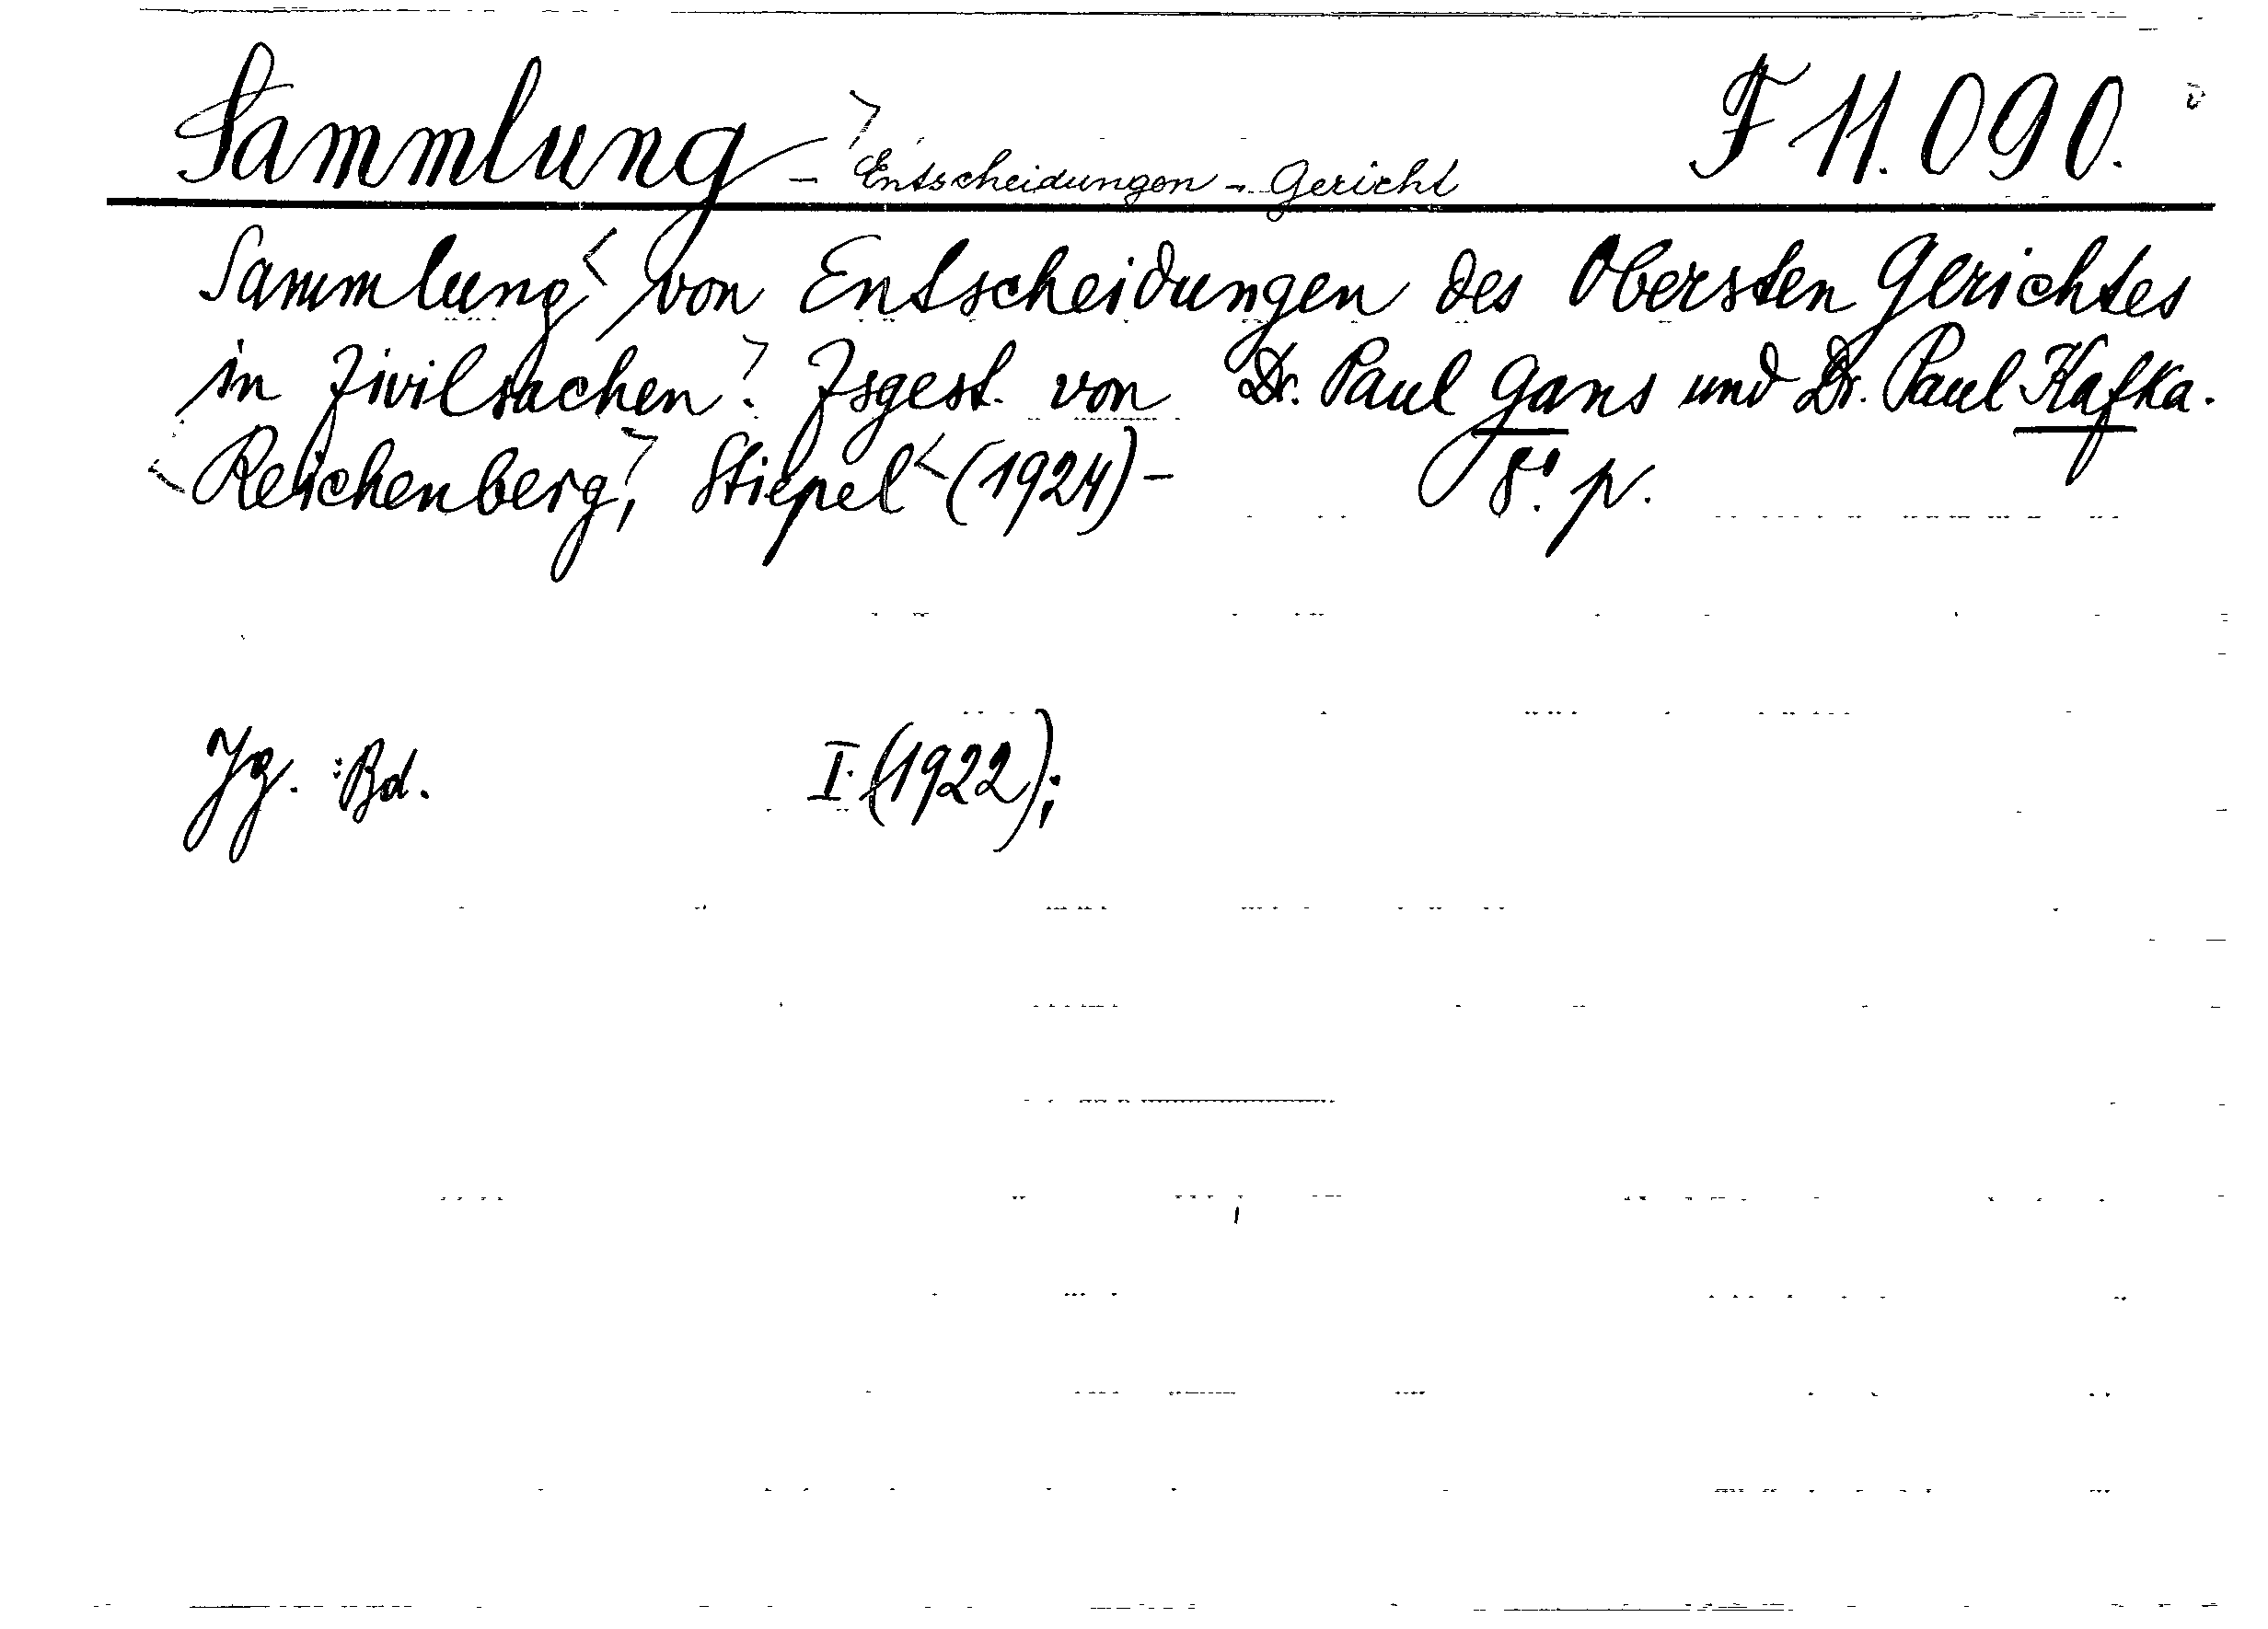 Sammlung - Entscheidungen - Gericht F 11.090.
Sammlung von Entscheidungen des Obersten Gerichtes
in Zivilsachen. Zsgest. von Dr. Paul Gans und Dr. Paul Kafka.
Reichenberg, Stiepel (1924) - 8°. p.
Jg. : Bd. I. (1922);